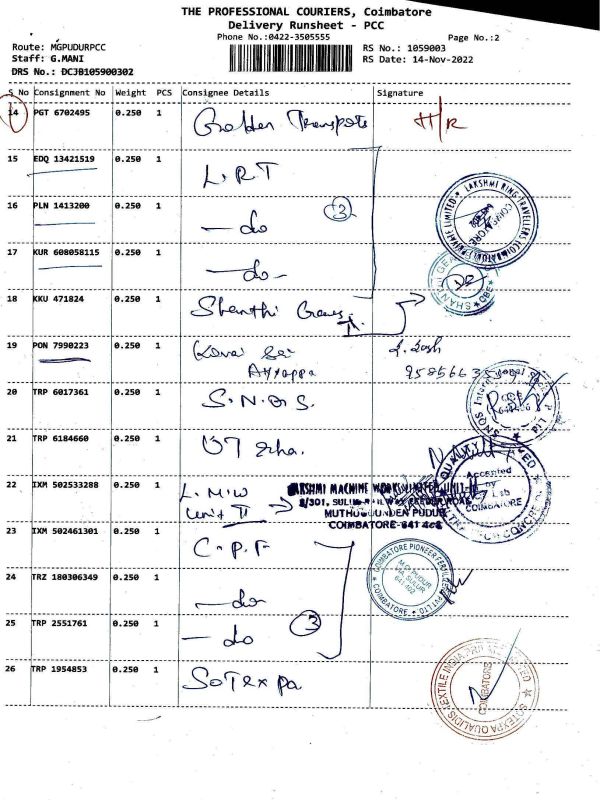 THE PROFESSIONAL COURIERS, Coimbatore
Delivery Runsheet - PCC
Phone No.:0422-3505555
Page No.:2
Route: MGPUDURPCC
RS No.: 1059003
Staff: G.MANI
RS Date: 14-Nov-2022
DRS No.: DCJB105900302
S No Consignment No Weight PCS Consignee Details Signature
14 PGT 6702495 0.250 1 Golden Transports H/R
15 EDQ 13421519 0.250 1 L.R.T
16 PLN 1413200 0.250 1 —do 3
LAKSHMI RING TRAVELLERS (COIMBATORE) PRIVATE LIMITED
COIMBATORE
17 KUR 608058115 0.250 1 —do-
18 KKU 471824 0.250 1 Shanthi Gears
19 PON 7990223 0.250 1 Kovai Sai
Ayyappa
20 TRP 6017361 0.250 1 S.N.Q.S.
21 TRP 6184660 0.250 1
22 IXM 502533288 0.250 1 L.M.W
Unit II
LAKSHMI MACHINE WORKS LIMITED UNIT-II
MUTHUGOUNDEN PUDUR
COIMBATORE-641 402
Accepted
by
Lab
COIMBATORE
23 IXM 502461301 0.250 1 C.P.F
24 TRZ 180306349 0.250 1 —do-
COIMBATORE PIONEER FERTILIZERS PVT LTD
COIMBATORE
M.G. PUDUR
VIA. SULUR
641 402
25 TRP 2551761 0.250 1 —do 3
26 TRP 1954853 0.250 1 SoTexpa
SOTEXPA QUALIDIS TEXTILE INDIA PRIVATE LIMITED
COIMBATORE